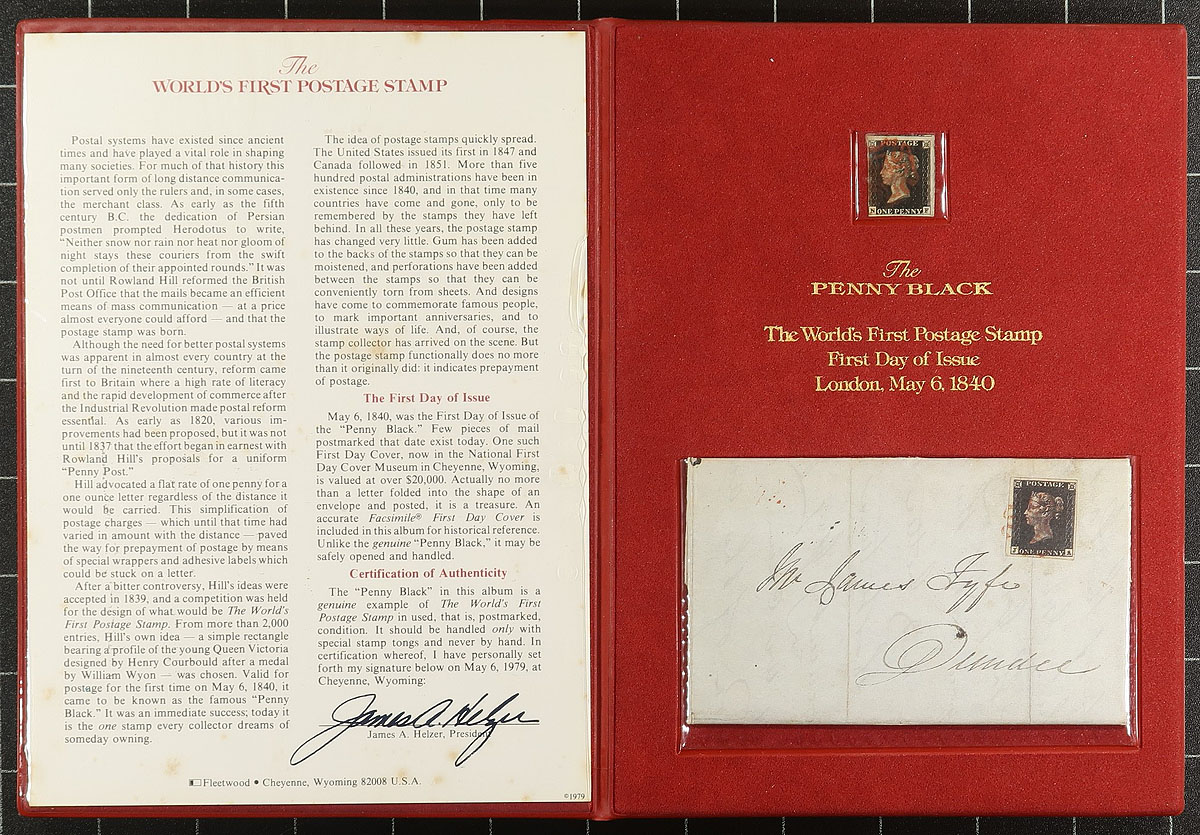 The
WORLD'S FIRST POSTAGE STAMP
Postal systems have existed since ancient
times and have played a vital role in shaping
many societies. For much of that history this
important form of long distance communica-
tion served only the rulers and, in some cases,
the merchant class. As early as the fifth
century B.C. the dedication of Persian
postmen prompted Herodotus to write,
"Neither snow nor rain nor heat nor gloom of
night stays these couriers from the swift
completion of their appointed rounds." It was
not until Rowland Hill reformed the British
Post Office that the mails became an efficient
means of mass communication — at a price
almost everyone could afford — and that the
postage stamp was born.
Although the need for better postal systems
was apparent in almost every country at the
turn of the nineteenth century, reform came
first to Britain where a high rate of literacy
and the rapid development of commerce after
the Industrial Revolution made postal reform
essential. As early as 1820, various im-
provements had been proposed, but it was not
until 1837 that the effort began in earnest with
Rowland Hill's proposals for a uniform
"Penny Post."
Hill advocated a flat rate of one penny for a
one ounce letter regardless of the distance it
would be carried. This simplification of
postage charges — which until that time had
varied in amount with the distance — paved
the way for prepayment of postage by means
of special wrappers and adhesive labels which
could be stuck on a letter.
After a bitter controversy, Hill's ideas were
accepted in 1839, and a competition was held
for the design of what would be The World's
First Postage Stamp. From more than 2,000
entries, Hill's own idea — a simple rectangle
bearing a profile of the young Queen Victoria
designed by Henry Courbould after a medal
by William Wyon — was chosen. Valid for
postage for the first time on May 6, 1840, it
came to be known as the famous "Penny
Black." It was an immediate success; today it
is the one stamp every collector dreams of
someday owning.
The idea of postage stamps quickly spread.
The United States issued its first in 1847 and
Canada followed in 1851. More than five
hundred postal administrations have been in
existence since 1840, and in that time many
countries have come and gone, only to be
remembered by the stamps they have left
behind. In all these years, the postage stamp
has changed very little. Gum has been added
to the backs of the stamps so that they can be
moistened, and perforations have been added
between the stamps so that they can be
conveniently torn from sheets. And designs
have come to commemorate famous people,
to mark important anniversaries, and to
illustrate ways of life. And, of course, the
stamp collector has arrived on the scene. But
the postage stamp functionally does no more
than it originally did: it indicates prepayment
of postage.
The First Day of Issue
May 6, 1840, was the First Day of Issue of
the "Penny Black." Few pieces of mail
postmarked that date exist today. One such
First Day Cover, now in the National First
Day Cover Museum in Cheyenne, Wyoming,
is valued at over $20,000. Actually no more
than a letter folded into the shape of an
envelope and posted, it is a treasure. An
accurate Facsimile® First Day Cover is
included in this album for historical reference.
Unlike the genuine "Penny Black," it may be
safely opened and handled.
Certification of Authenticity
The "Penny Black" in this album is a
genuine example of The World's First
Postage Stamp in used, that is, postmarked,
condition. It should be handled only with
special stamp tongs and never by hand. In
certification whereof, I have personally set
forth my signature below on May 6, 1979, at
Cheyenne, Wyoming:
James A. Helzer
James A. Helzer, President
Fleetwood • Cheyenne, Wyoming 82008 U.S.A.
©1979
POSTAGE
N ONE PENNY F
The
PENNY BLACK
The World's First Postage Stamp
First Day of Issue
London, May 6, 1840
POSTAGE
ONE PENNY A
James Fyfe
Dundee